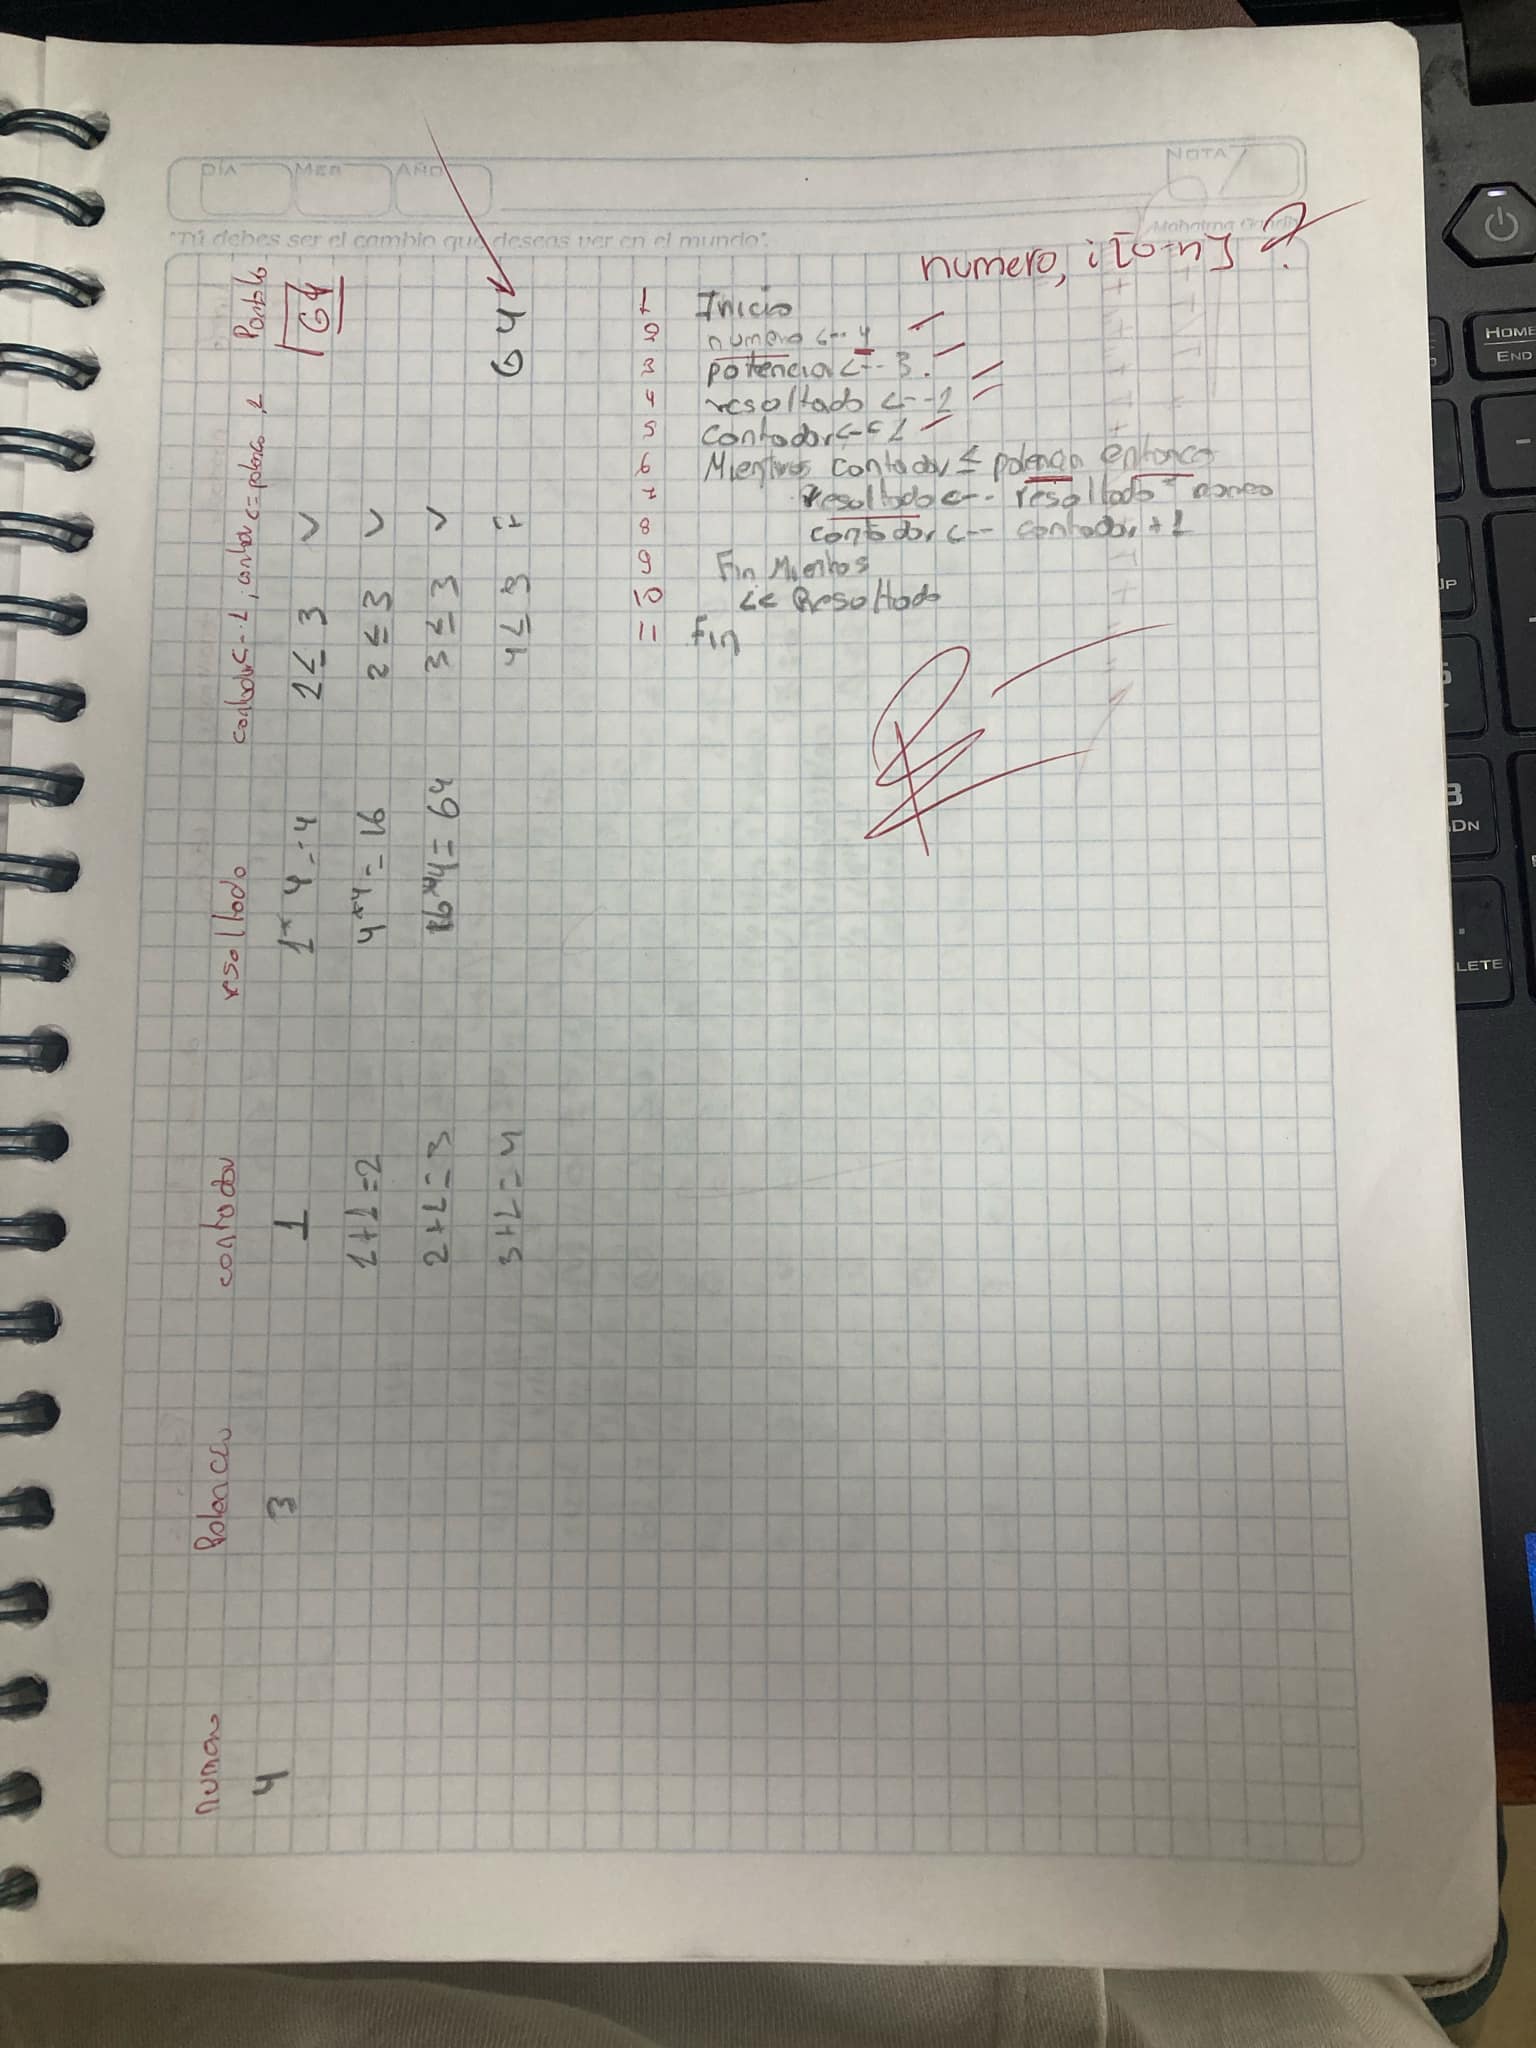 DÍA MES AÑO NOTA
"Tú debes ser el cambio que deseas ver en el mundo". Mahatma Gandhi
numero, i [0-n] ?
1 Inicio
2 numero <-- 4
3 potencia <-- 3.
4 resultado <-- 1
5 Contador <-- 1
6 Mientras contador ≤ potencia entonces
7 resultado <-- resultado *
8 contador <-- contador + 1
9 Fin Mientras
10 << Resultado
11 Fin
numero Potencia contador resultado contador <-- 1, contador <= potencia, 1 Pantalla
4 3 1 1 * 4 = 4 1 ≤ 3 V 64
1+1=2 4*4=16 2 ≤ 3 V
2+1=3 16*4=64 3 ≤ 3 V
3+1=4 4 ≤ 3 F 64
HOME
END
DELETE